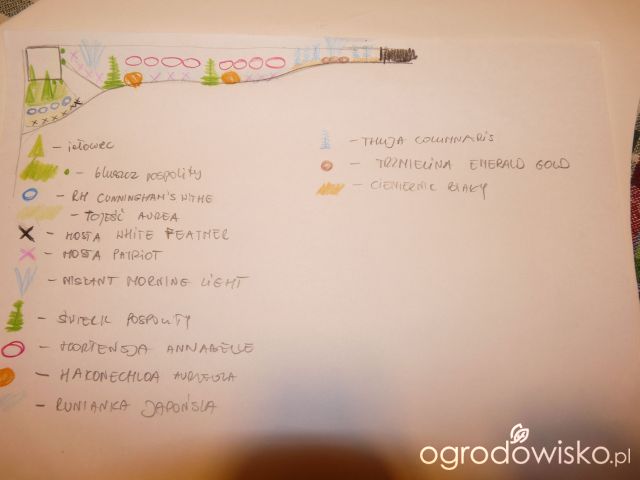 - jałowiec
- bluszcz pospolity
- RH CUNNINGHAM'S WITHE
- TOJEŚĆ AUREA
- HOSTA WHITE FEATHER
- HOSTA PATRIOT
- MISKANT MORNING LIGHT
- ŚWIERK POSPOLITY
- HORTENSJA ANNABELLE
- HAKONECHLOA AUREOLA
- RUNIANKA JAPOŃSKA
- THUJA COLUMNARIS
- TRZMIELINA EMERALD GOLD
- CIEMIERNIK BIAŁY
ogrodowisko.pl